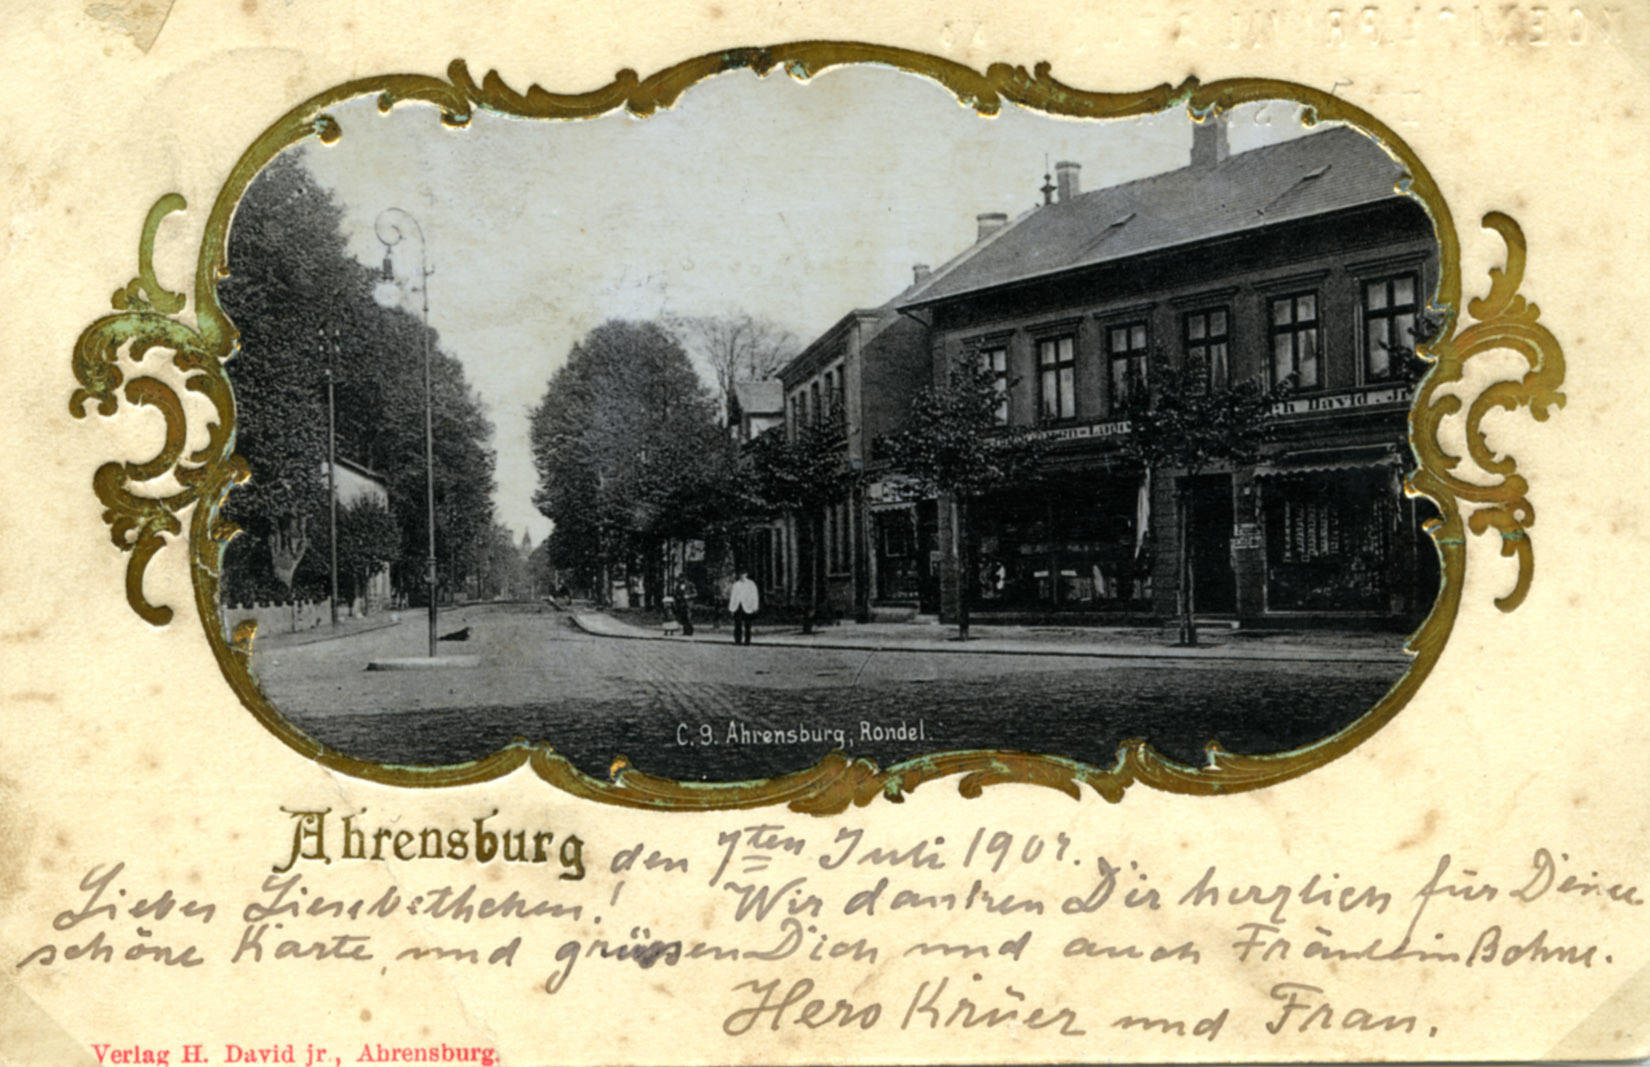 ch David. Jr
C. 9. Ahrensburg, Rondel.
Ahrensburg den 7ten Juli 1907.
Liebes Liesebethchen! Wir danken Dir herzlich für Deine
schöne Karte, und grüssen Dich und auch Fräulein Bohne.
Hero Krüer und Frau.
Verlag H. David jr., Ahrensburg.